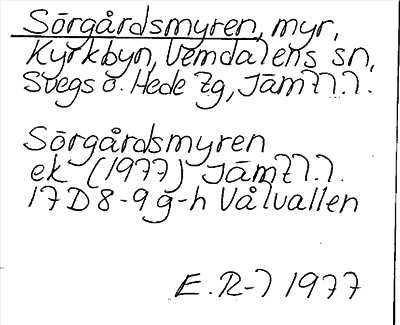 Sörgårdsmyren, myr,
Kyrkbyn, Vemdalens sn,
Svegs o. Hede tg, Jämtl.l.
Sörgårdsmyren
ek (1977) Jämtl.l.
17D8-9g-h Vålvallen
E.R-l 1977